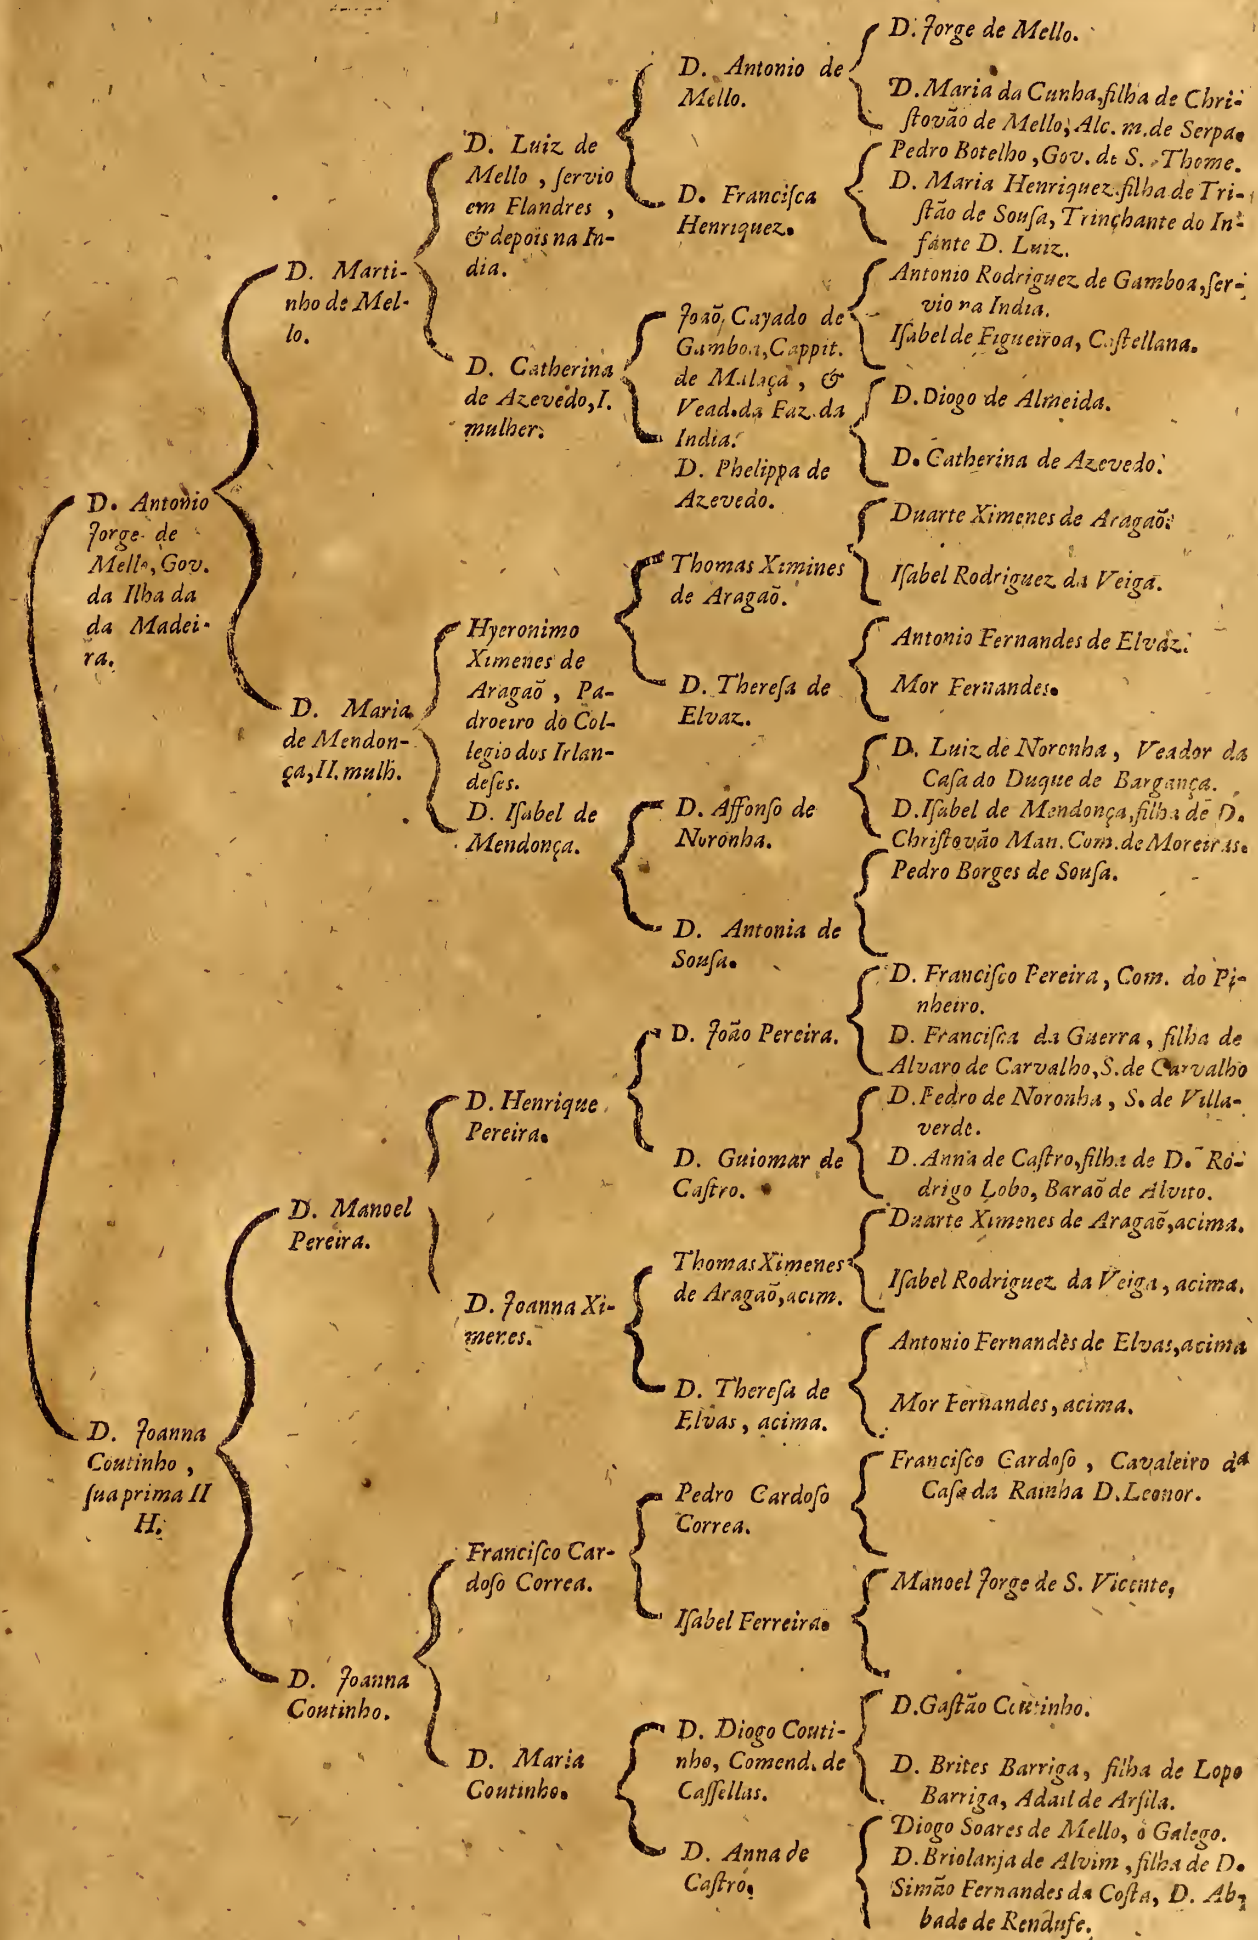 D. Antonio
Jorge de
Mello, Gov.
da Ilha da
da Madei-
ra.
D. Joanna
Coutinho,
ſua prima II
H.
D. Marti-
nho de Mel-
lo.
D. Maria
de Mendon-
ça, II. mulh.
D. Manoel
Pereira.
D. Joanna
Coutinho.
D. Luiz de
Mello, ſervio
em Flandres,
& depois na In-
dia.
D. Catherina
de Azevedo, I.
mulher.
Hyeronimo
Ximenes de
Aragaõ, Pa-
droeiro do Col-
legio dos Irlan-
deſes.
D. Iſabel de
Mendonça.
D. Henrique
Pereira.
D. Joanna Xi-
menes.
Franciſco Car-
doſo Correa.
D. Maria
Coutinho.
D. Antonio de
Mello.
D. Franciſca
Henriquez.
Joaõ Cayado de
Gamboa, Cappit.
de Malaça, &
Vead. da Faz. da
India.
D. Phelippa de
Azevedo.
Thomas Ximines
de Aragaõ.
D. Thereſa de
Elvaz.
D. Affonſo de
Noronha.
D. Antonia de
Souſa.
D. João Pereira.
D. Guiomar de
Caſtro.
Thomas Ximenes
de Aragaõ, acim.
D. Thereſa de
Elvas, acima.
Pedro Cardoſo
Correa.
Iſabel Ferreira.
D. Diogo Couti-
nho, Comend. de
Caſſellas.
D. Anna de
Caſtro.
D. Jorge de Mello.
D. Maria da Cunha, filha de Chri-
ſtovão de Mello, Alc. m. de Serpa.
Pedro Botelho, Gov. de S. Thome.
D. Maria Henriquez filha de Tri-
ſtão de Souſa, Trinchante do In-
fante D. Luiz.
Antonio Rodriguez de Gamboa, ſer-
vio na India.
Iſabel de Figueiroa, Caſtellana.
D. Diogo de Almeida.
D. Catherina de Azevedo.
Duarte Ximenes de Aragaõ.
Iſabel Rodriguez da Veiga.
Antonio Fernandes de Elvaz.
Mor Fernandes.
D. Luiz de Noronha, Veador da
Caſa do Duque de Bargança.
D. Iſabel de Mendonça, filha de D.
Chriſtovão Man. Com. de Moreiras.
Pedro Borges de Souſa.
D. Franciſco Pereira, Com. do Pi-
nheiro.
D. Franciſca da Guerra, filha de
Alvaro de Carvalho, S. de Carvalho
D. Pedro de Noronha, S. de Villa-
verde.
D. Anna de Caſtro, filha de D. Ro-
drigo Lobo, Baraõ de Alvito.
Duarte Ximenes de Aragaõ, acima.
Iſabel Rodriguez da Veiga, acima.
Antonio Fernandes de Elvas, acima
Mor Fernandes, acima.
Franciſco Cardoſo, Cavaleiro da
Caſa da Rainha D. Leonor.
Manoel Jorge de S. Vicente,
D. Gaſtão Coutinho.
D. Brites Barriga, filha de Lopo
Barriga, Adail de Arſila.
Diogo Soares de Mello, o Galego.
D. Briolanja de Alvim, filha de D.
Simão Fernandes da Coſta, D. Ab-
bade de Rendufe.